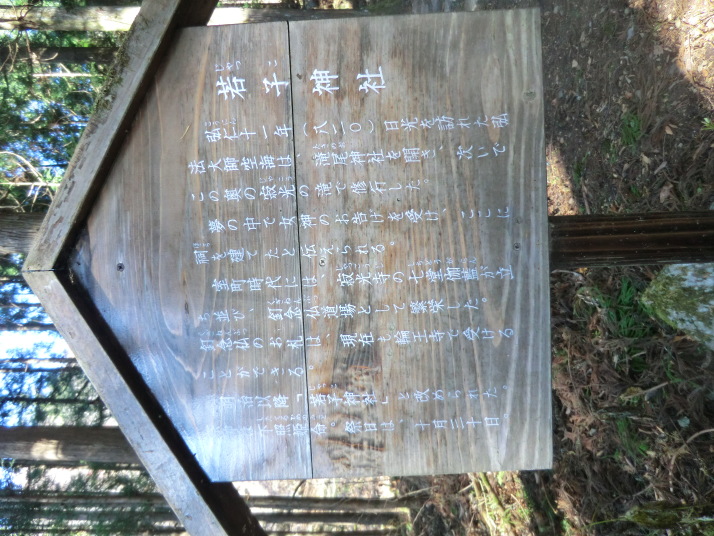 若子神社
弘仁十一年(八二〇)日光を訪れた弘
法大師空海は、滝尾神社を開き、次いで
この奥の寂光の滝で修行した。
夢の中で女神のお告げを受け、ここに
祠を建てたと伝えられる。
室町時代には、寂光寺の七堂伽藍が立
ち並び、釘念仏道場として繁栄した。
釘念仏のお札は、現在も輪王寺で受ける
ことができる。
明治以降「若子神社」と改められた。
下照姫命。祭日は、十月二十日。